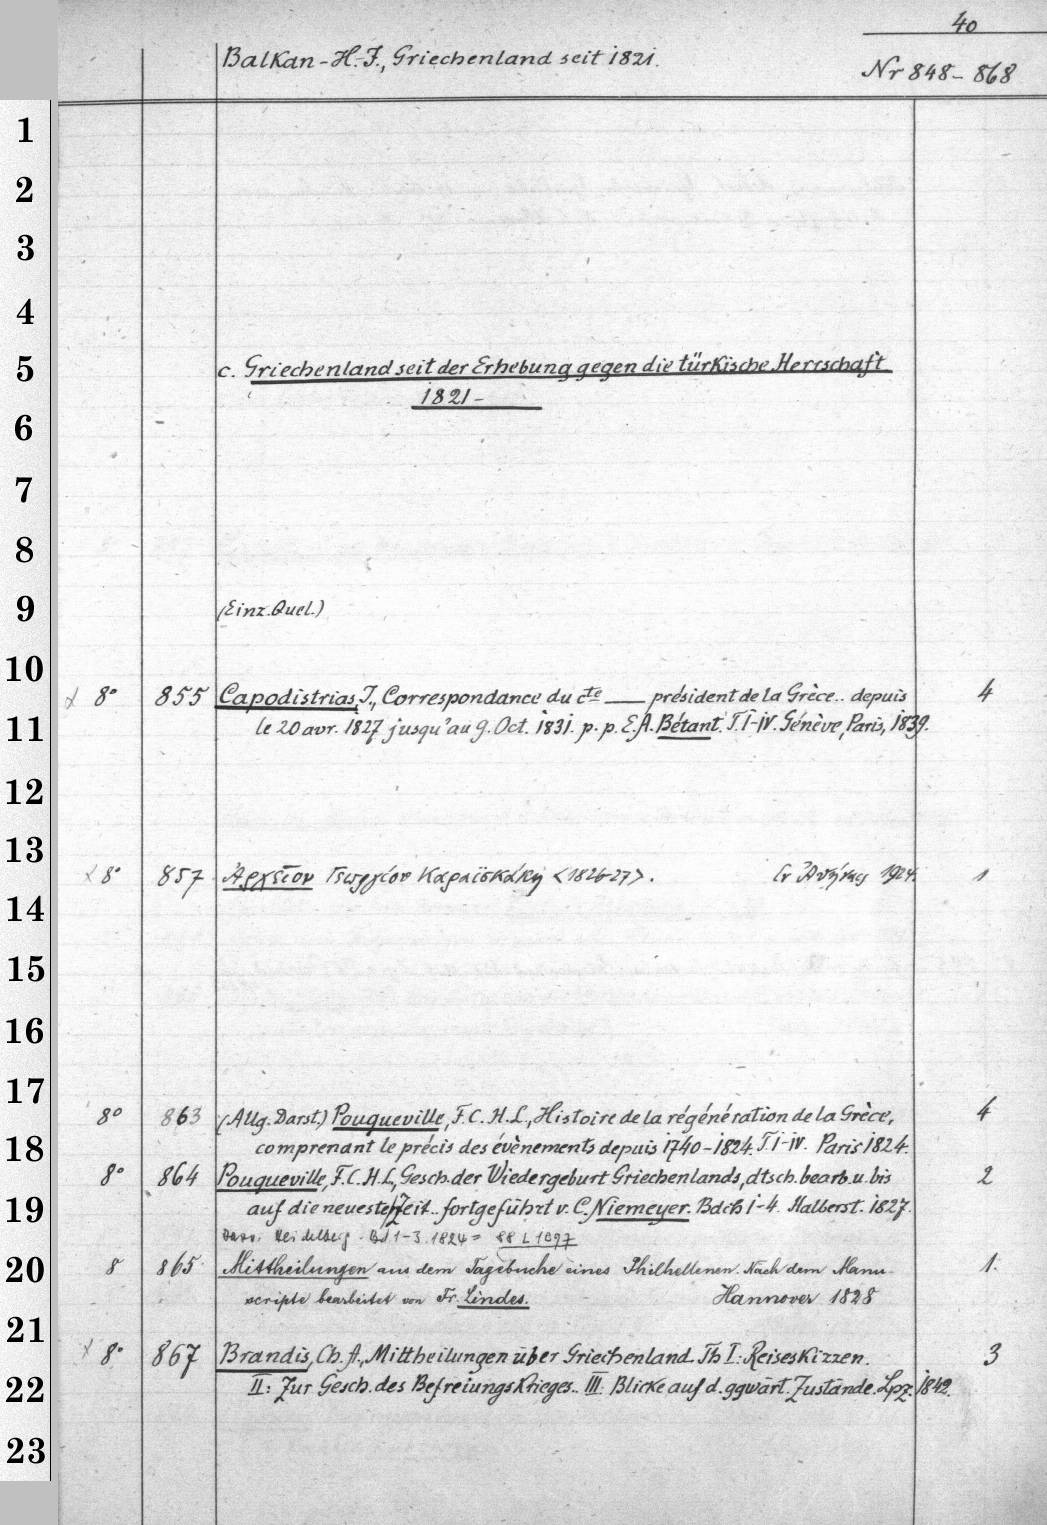 40
Balkan-H.-J., Griechenland seit 1821.
Nr 848-868
1
2
3
4
5
c. Griechenland seit der Erhebung gegen die türkische Herrschaft
1821-
6
7
8
9
(Einz. Quel.)
10
8° 855 Capodistrias, J., Correspondance du cte ___ président de la Grèce.. depuis 4
11
le 20 avr. 1827 jusqu'au 9. Oct. 1831. p. p. E. A. Bétant. T. I-IV. Génève, Paris, 1839.
12
13
8° 857 Ἀρχεῖον Γεωργίου Καραϊσκάκη <1826-27>. Ἐν Ἀθήναις 1924. 1
14
15
16
17
8° 863 (Allg. Darst.) Pouqueville, F. C. H. L., Histoire de la régénération de la Grèce, 4
18
comprenant le précis des évènements depuis 1740-1824. T. I-IV. Paris 1824.
8° 864 Pouqueville, F. C. H. L., Gesch. der Wiedergeburt Griechenlands, dtsch. bearb. u. bis 2
19
auf die neueste Zeit.. fortgeführt v. C. Niemeyer. Bdch 1-4. Halberst. 1827.
Heidelberg. Bd 1-3. 1824 = 88 L 1097
20
8 865 Mittheilungen aus dem Tagebuche eines Philhellenen. Nach dem Manu- 1.
scripte bearbeitet von Fr. Lindes. Hannover 1828
21
8° 867 Brandis, Ch. A., Mittheilungen über Griechenland. Th I: Reiseskizzen. 3
22
II: Zur Gesch. des Befreiungskrieges.. III: Blicke auf d. ggwärt. Zustände. Lpz. 1842.
23